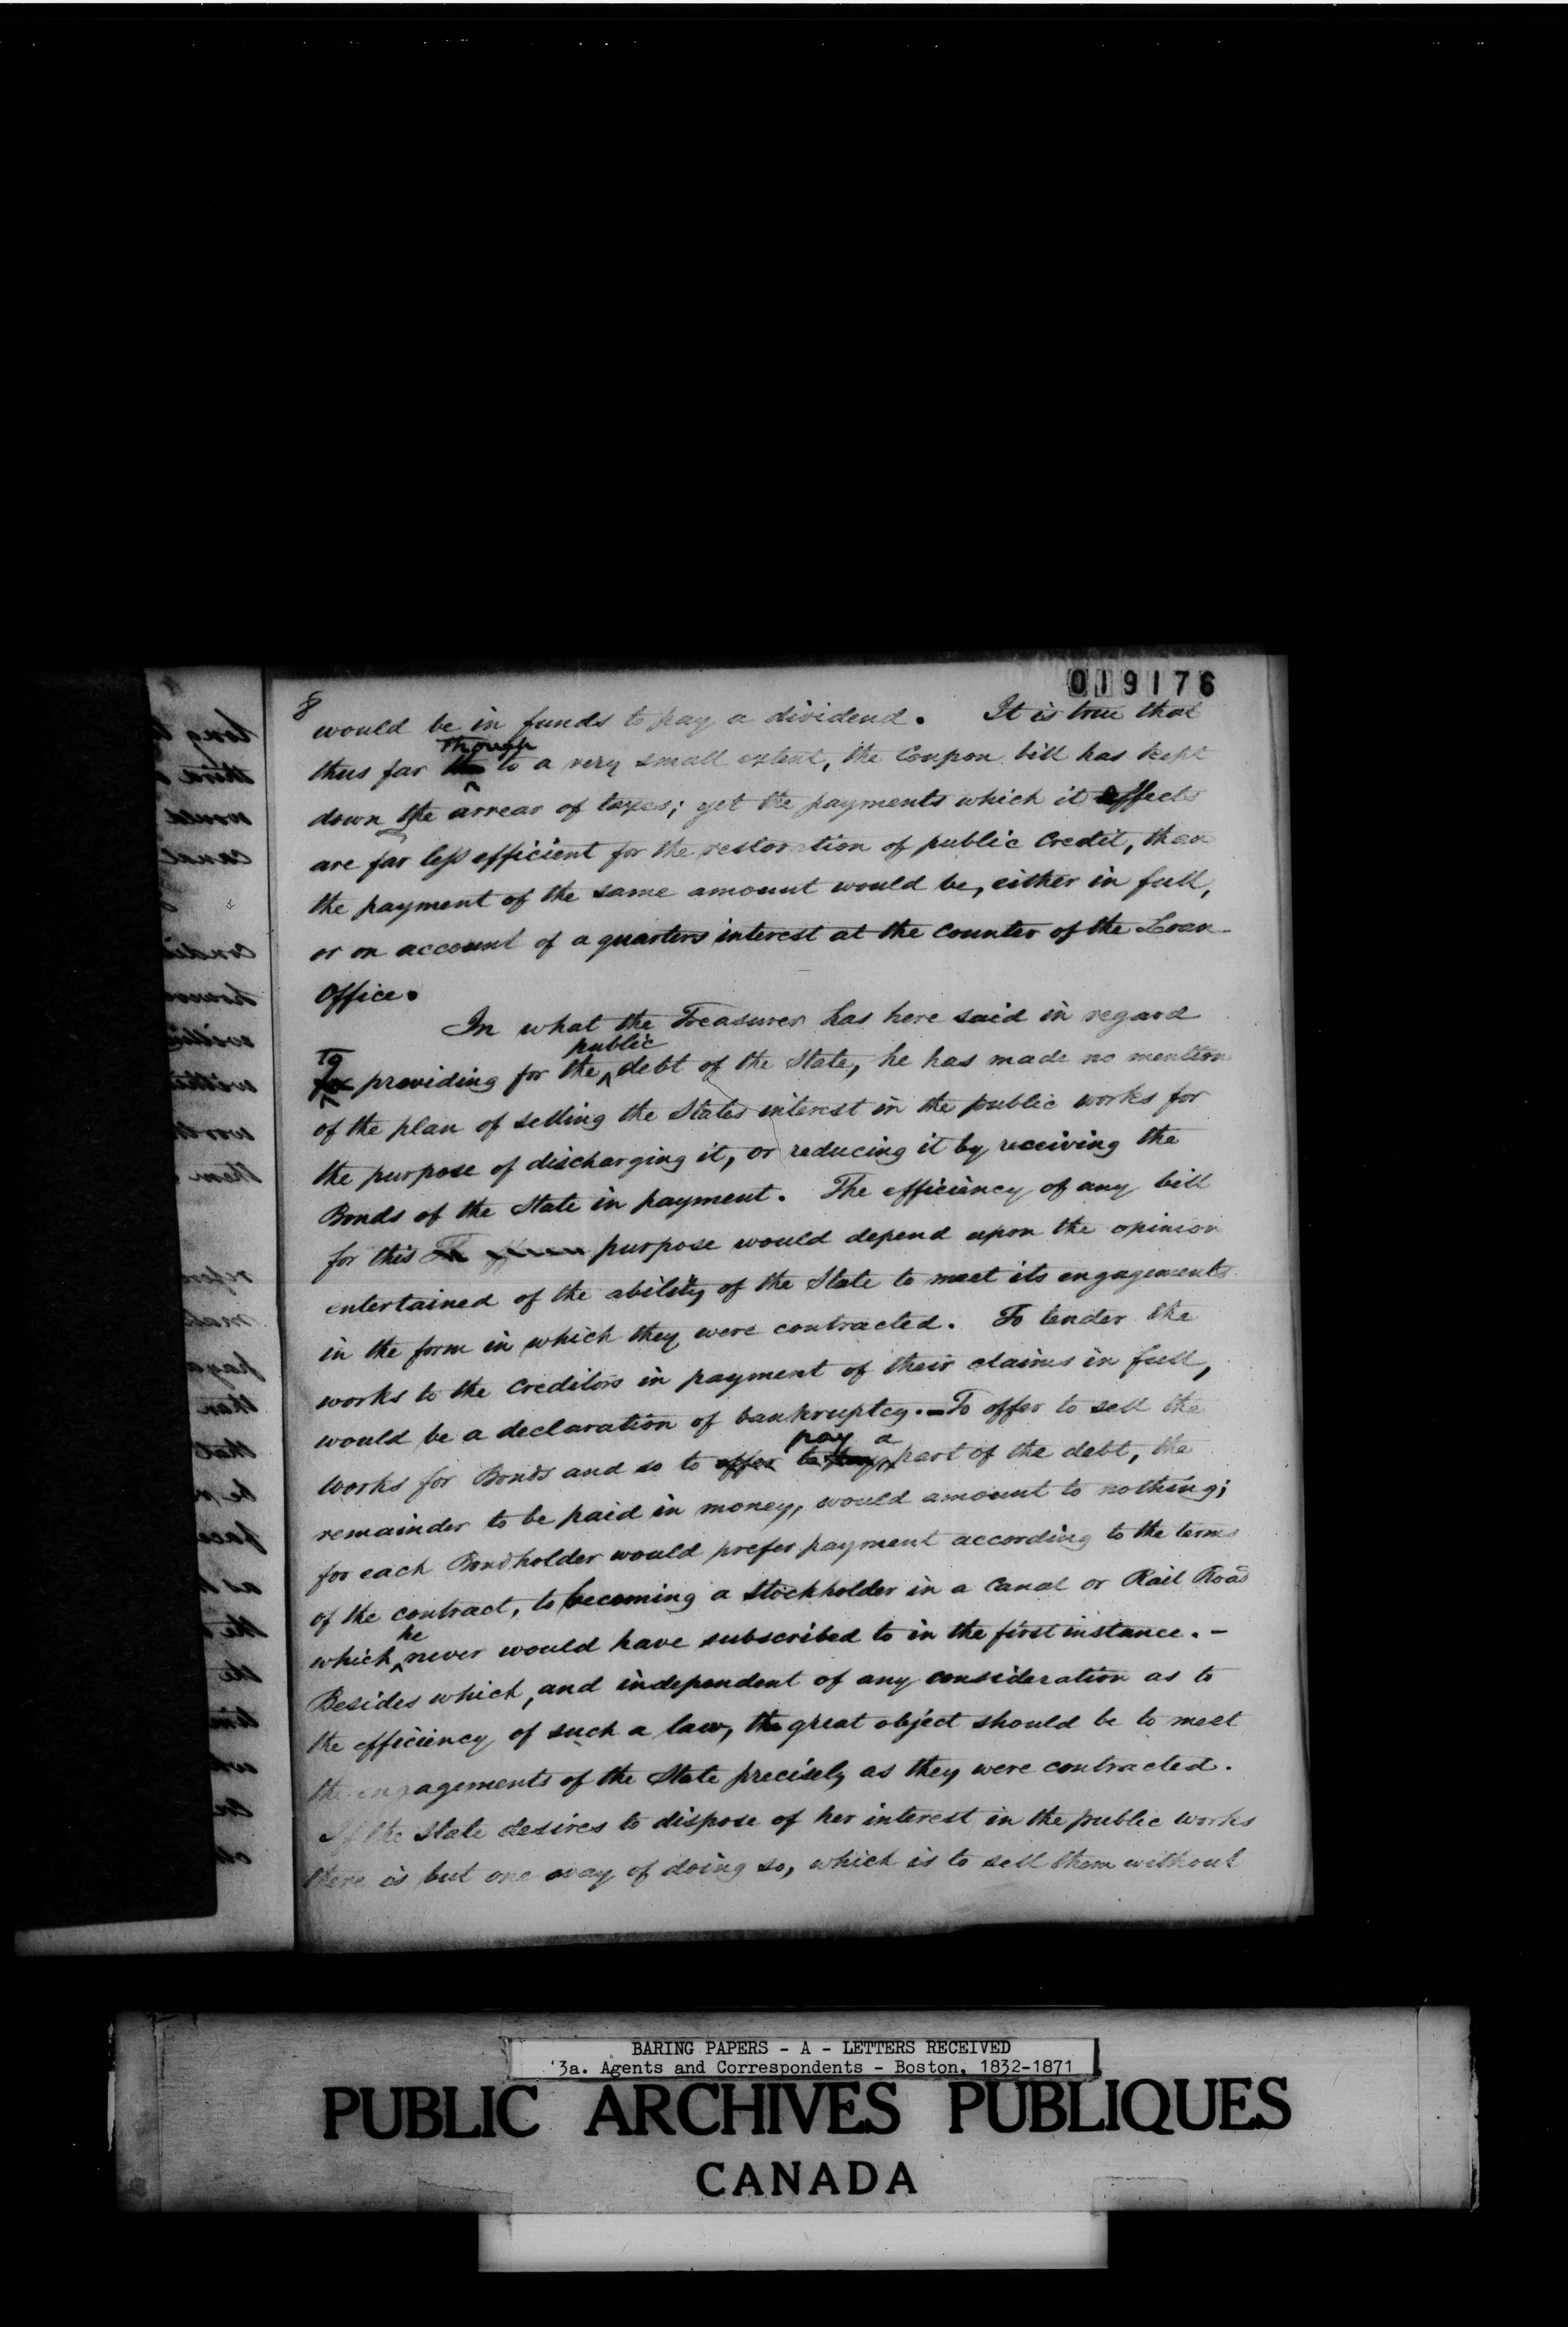 019176
8
would be in funds to pay a dividend. It is true that
though
thus far to a very small extent, the Coupon bill has kept
down the arrear of taxes; yet the payments which it effects
are far less efficient for the restoration of public Credit, than
the payment of the same amount would be, either in full,
or on account of a quarters interest at the counter of the Loan
Office.
In what the Treasurer has here said in regard
To public
for providing for the debt of the State, he has made no mention
of the plan of selling the States interest in the public works for
the purpose of discharging it, or reducing it by receiving the
Bonds of the State in payment. The efficiency of any bill
for this purpose would depend upon the opinion
entertained of the ability of the State to meet its engagements
in the form in which they were contracted. To tender the
works to the Creditors in payment of their claims in full,
would be a declaration of bankruptcy. - To offer to sell the
pay a
works for Bonds and so to offer to pay part of the debt, the
remainder to be paid in money, would amount to nothing;
for each Bondholder would prefer payment according to the terms
of the contract, to becoming a Stockholder in a Canal or Rail Road
he
which never would have subscribed to in the first instance. -
Besides which, and independent of any consideration as to
the efficiency of such a law, the great object should be to meet
the engagements of the State precisely as they were contracted.
If the State desires to dispose of her interest in the public works
there is but one way of doing so, which is to sell them without
BARING PAPERS - A - LETTERS RECEIVED
3a. Agents and Correspondents - Boston, 1832-1871
PUBLIC ARCHIVES PUBLIQUES
CANADA